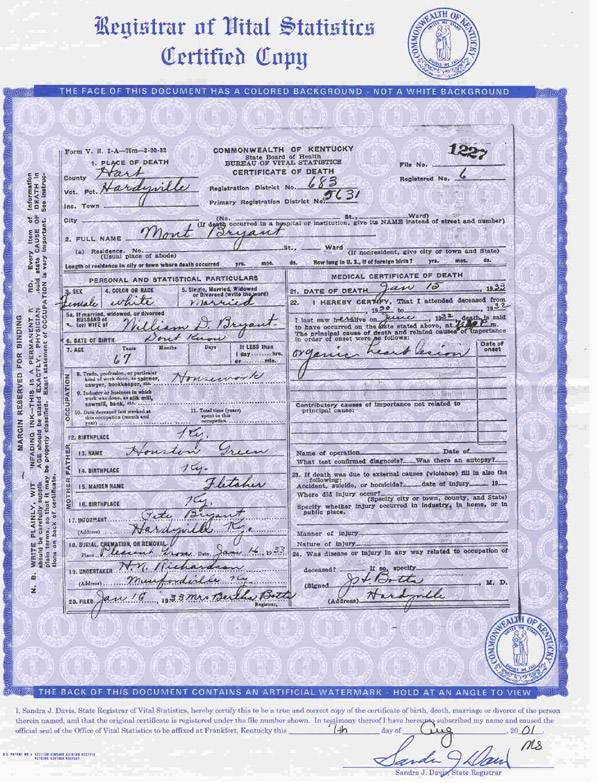 Registrar of Vital Statistics
Certified Copy
COMMONWEALTH OF KENTUCKY
THE FACE OF THIS DOCUMENT HAS A COLORED BACKGROUND - NOT A WHITE BACKGROUND
Form V. S. 1-A
COMMONWEALTH OF KENTUCKY
State Board of Health
BUREAU OF VITAL STATISTICS
CERTIFICATE OF DEATH
File No. 1227
Registered No. 6
1. PLACE OF DEATH
County Hart
Vot. Pct. Hardyville
Registration District No. 683
Inc. Town
Primary Registration District No. 5631
City (No. St., Ward)
(If death occurred in a hospital or institution, give its NAME instead of street and number)
2. FULL NAME Mont Bryant
(a) Residence. No. St., Ward
(Usual place of abode) (If nonresident, give city or town and State)
Length of residence in city or town where death occurred yrs. mos. ds. How long in U. S., if of foreign birth? yrs. mos. ds.
PERSONAL AND STATISTICAL PARTICULARS
3. SEX 4. COLOR OR RACE 5. Single, Married, Widowed or Divorced (write the word)
Female white Married
5a. If married, widowed, or divorced
HUSBAND of
(or) WIFE of William D. Bryant
6. DATE OF BIRTH Dont Know
7. AGE Years Months Days If LESS than
1 day hrs.
or min.
67
OCCUPATION
8. Trade, profession, or particular kind of work done, as spinner, sawyer, bookkeeper, etc. Housework
9. Industry or business in which work was done, as silk mill, sawmill, bank, etc.
10. Date deceased last worked at this occupation (month and year)
11. Total time (years) spent in this occupation
12. BIRTHPLACE Ky.
FATHER
13. NAME Houston Green
14. BIRTHPLACE Ky.
MOTHER
15. MAIDEN NAME Fletcher
16. BIRTHPLACE Ky
17. INFORMANT Bryant
(Address) Hardyville Ky.
18. BURIAL, CREMATION, OR REMOVAL
Place Pleasant Date Jan 16, 1933
19. UNDERTAKER H.N. Richardson
(Address) Munfordville Ky.
20. FILED Jan 16, 1933 Mrs Bertha Botts
Registrar.
MEDICAL CERTIFICATE OF DEATH
21. DATE OF DEATH Jan 15, 1933
22. I HEREBY CERTIFY, That I attended deceased from
, 1930 to , 1932
I last saw her alive on June, 1932 death is said
to have occurred on the date stated above, at m.
The principal cause of death and related causes of importance
in order of onset were as follows: Date of onset
organic heart lesion
Contributory causes of importance not related to
principal cause:
Name of operation Date of
What test confirmed diagnosis? Was there an autopsy?
23. If death was due to external causes (violence) fill in also the
following:
Accident, suicide, or homicide? date of injury 19
Where did injury occur?
(Specify city or town, county, and State)
Specify whether injury occurred in industry, in home, or in
public place.
Manner of injury
Nature of injury
24. Was disease or injury in any way related to occupation of
deceased? If so, specify
(Signed) Botts, M. D.
(Address) Hardyville
MARGIN RESERVED FOR BINDING
COMMONWEALTH OF KENTUCKY
THE BACK OF THIS DOCUMENT CONTAINS AN ARTIFICIAL WATERMARK - HOLD AT AN ANGLE TO VIEW
I, Sandra J. Davis, State Registrar of Vital Statistics, hereby certify this to be a true and correct copy of the certificate of birth, death, marriage or divorce of the person
therein named, and that the original certificate is registered under the file number shown. In testimony thereof I have hereunto subscribed my name and caused the
official seal of the Office of Vital Statistics to be affixed at Frankfort, Kentucky this 7th day of Aug, 2001
MS
Sandra J. Davis
Sandra J. Davis, State Registrar